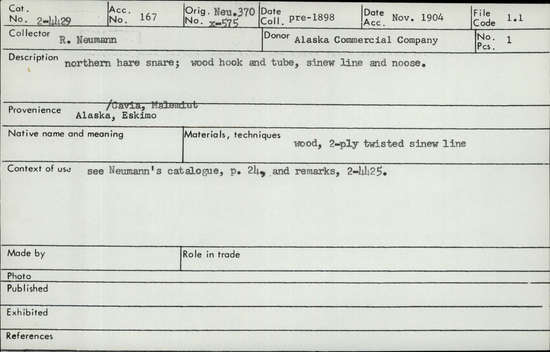 Cat. No. 2-4429 Acc. No. 167 Orig. Neu.370 No. x-575 Date Coll. pre-1898 Date Acc. Nov. 1904 File Code 1.1
Collector R. Neumann Donor Alaska Commercial Company No. Pcs. 1
Description northern hare snare; wood hook and tube, sinew line and noose.
Provenience /Gavia, Malemiut
Alaska, Eskimo
Native name and meaning Materials, techniques
wood, 2-ply twisted sinew line
Context of use see Neumann's catalogue, p. 24, and remarks, 2-4425.
Made by Role in trade
Photo
Published
Exhibited
References